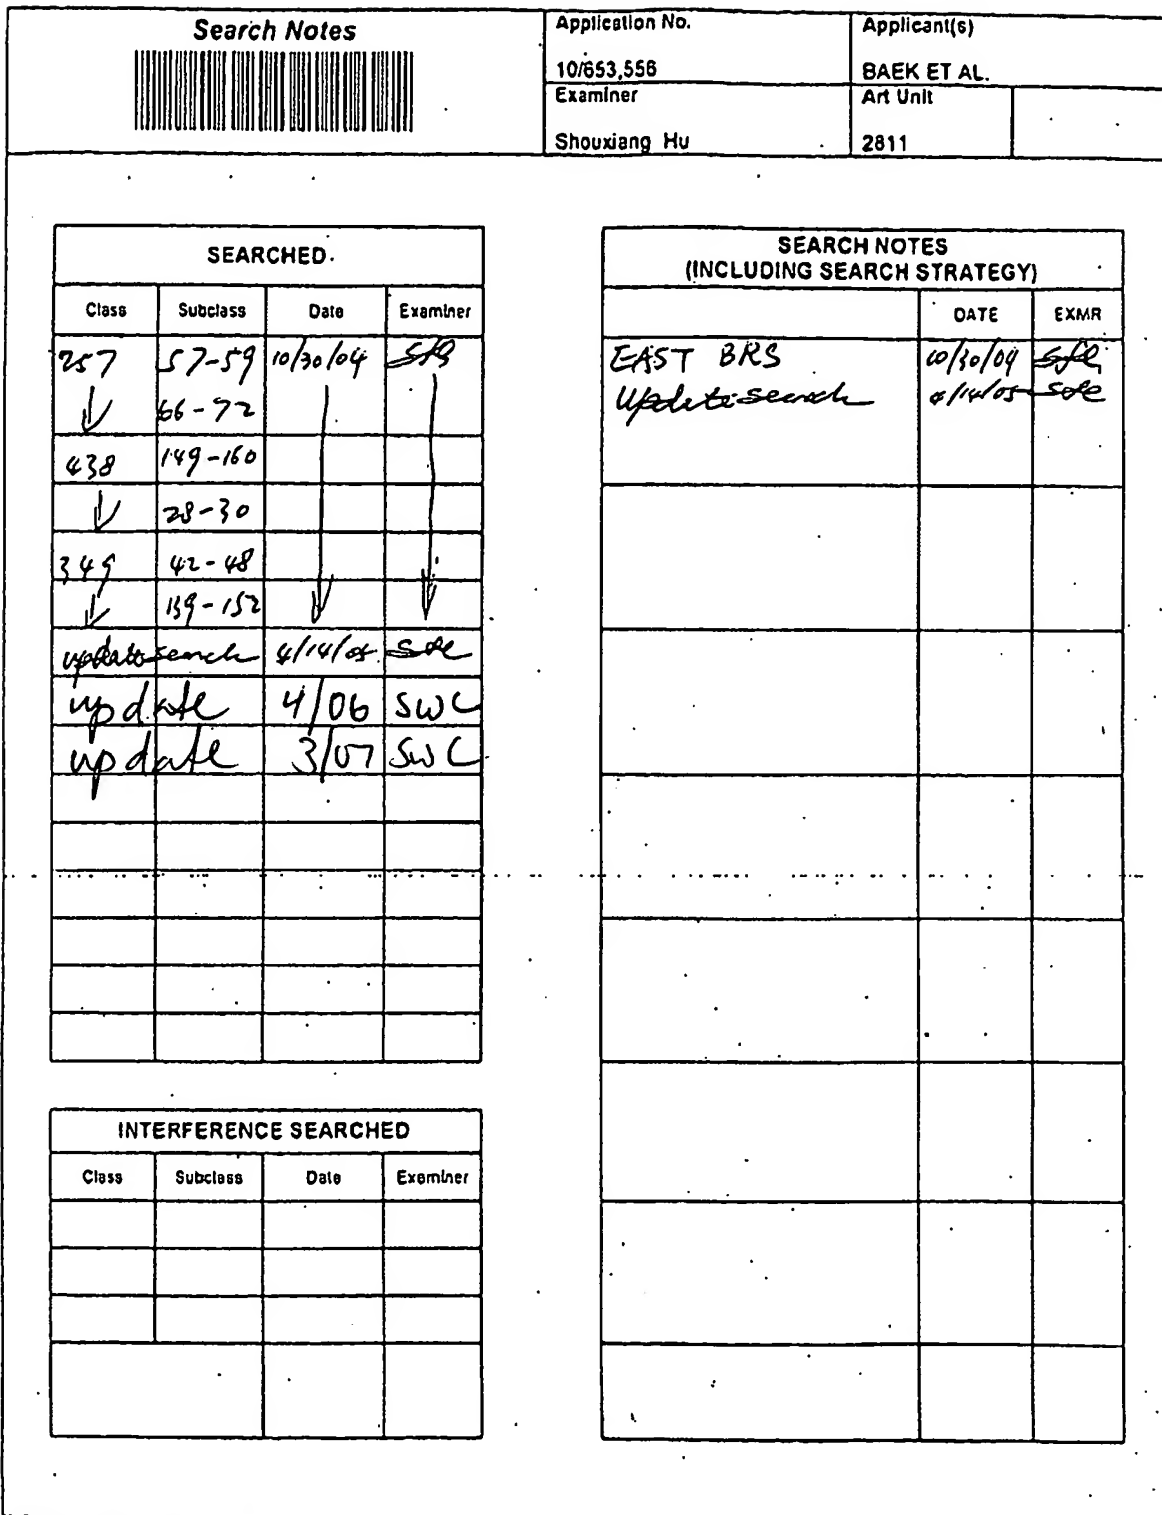 Search Notes
Application No.
10/653,556
Applicant(s)
BAEK ET AL.
Examiner
Shouxiang Hu
Art Unit
2811
SEARCHED
Class Subclass Date Examiner
257 57-59 10/30/04
66-72
438 149-160
28-30
349 42-48
139-152
update search 4/14/05
update 4/06 SWC
update 3/07 SWC
INTERFERENCE SEARCHED
Class Subclass Date Examiner
SEARCH NOTES
(INCLUDING SEARCH STRATEGY)
DATE EXMR
EAST BRS 10/30/04
Update search 4/14/05